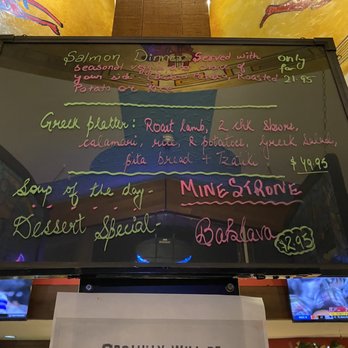 Salmon Dinner Served with only
seasonal for
your side Roasted 21.95
Potato or Rice
Greek platter: Roast lamb, 2 chk skews,
calamari, rice, R potatoes, Greek Salad,
pita bread + Tzatziki
$49.95
Soup of the day - MINESTRONE
Dessert Special - Baklava $2.95